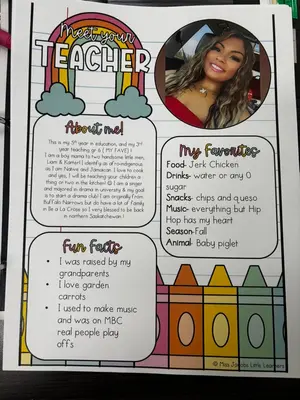 Meet your
TEACHER
About me!
This is my 5th year in education, and my 3rd
year teaching gr 6 ( MY FAVE) !
I am a boy mama to two handsome little men,
Liam & Kamari I identify as afroindigenous
as I am Native and Jamaican. I love to cook
and yes, I will be teaching your children a
thing or two in the kitchen! I am a singer
and majored in drama in university & my goal
is to start a drama club! I am originally from
Buffalo Narrows but do have a lot of family
in Île à La Crosse so I very blessed to be back
in northern Saskatchewan !
My Favorites
Food- Jerk Chicken
Drinks- water or any 0
sugar
Snacks- chips and queso
Music- everything but Hip
Hop has my heart
Season-Fall
Animal- Baby piglet
Fun Facts
• I was raised by my
grandparents
• I love garden
carrots
• I used to make
music and was on MBC
real people play
offs
© Miss Jacobs Little Learners